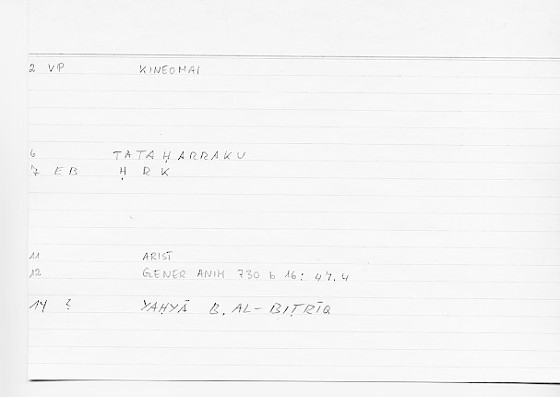 2 VP KINEOMAI
6 TATAḤARRAKU
7 EB ḤRK
11 ARIST
12 GENER ANIM 730 b 16: 47.4
14 ? YAḤYĀ B. AL-BIṬRĪQ